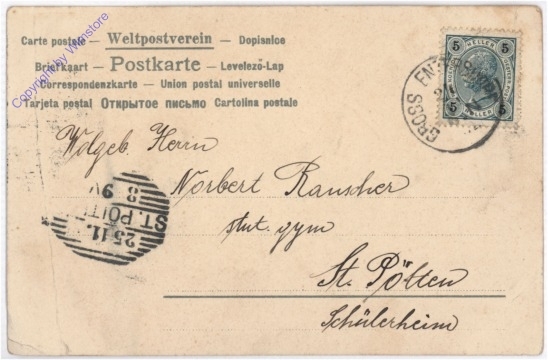 Carte postale — Weltpostverein — Dopisnice
Briefkaart — Postkarte — Levelező-Lap
Correspondenzkarte — Union postal universelle
Tarjeta postal Открытое письмо Cartolina postale
Copyright by Winstore
5 HELLER 5
5 HELLER 5
GROSS ENZERSDORF
Wolgeb. Herrn
Norbert Rauscher
stut. gym
St. Pölten
Schülerheim
ST. PÖLT
25.11.
8